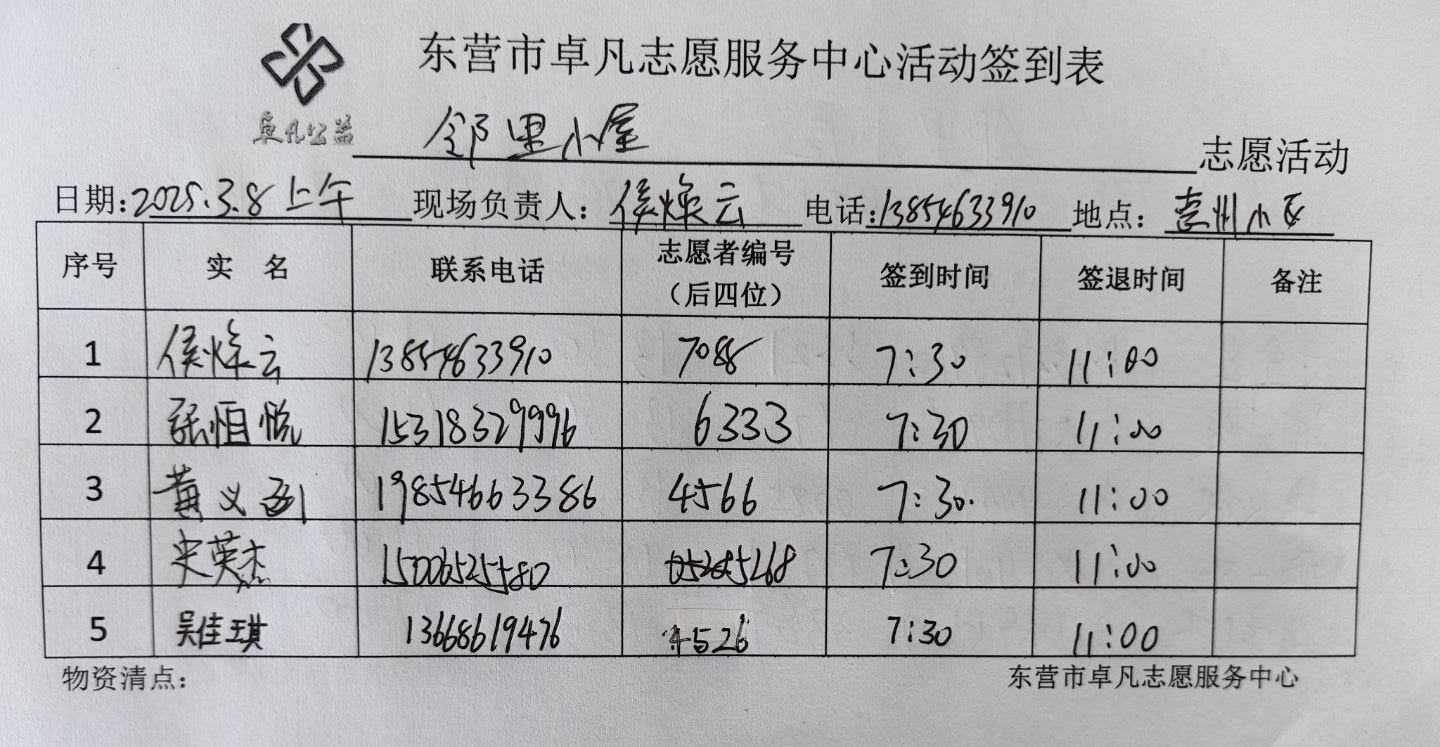 东营市卓凡志愿服务中心活动签到表
卓凡公益
邻里小屋 志愿活动
日期:2025.3.8上午 现场负责人:侯焕云 电话:13854633910 地点:州小区
序号 实 名 联系电话 志愿者编号(后四位) 签到时间 签退时间 备注
1 侯焕云 13854633910 7088 7:30 11:00
2 张恒悦 15318329996 6333 7:30 11:00
3 黄义 19854663386 4566 7:30. 11:00
4 史英杰 15006525580 5268 7:30 11:00
5 吴佳琪 13668619476 4526 7:30 11:00
物资清点: 东营市卓凡志愿服务中心